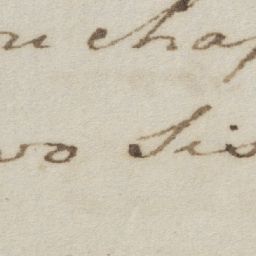 ou chap
wo Sis